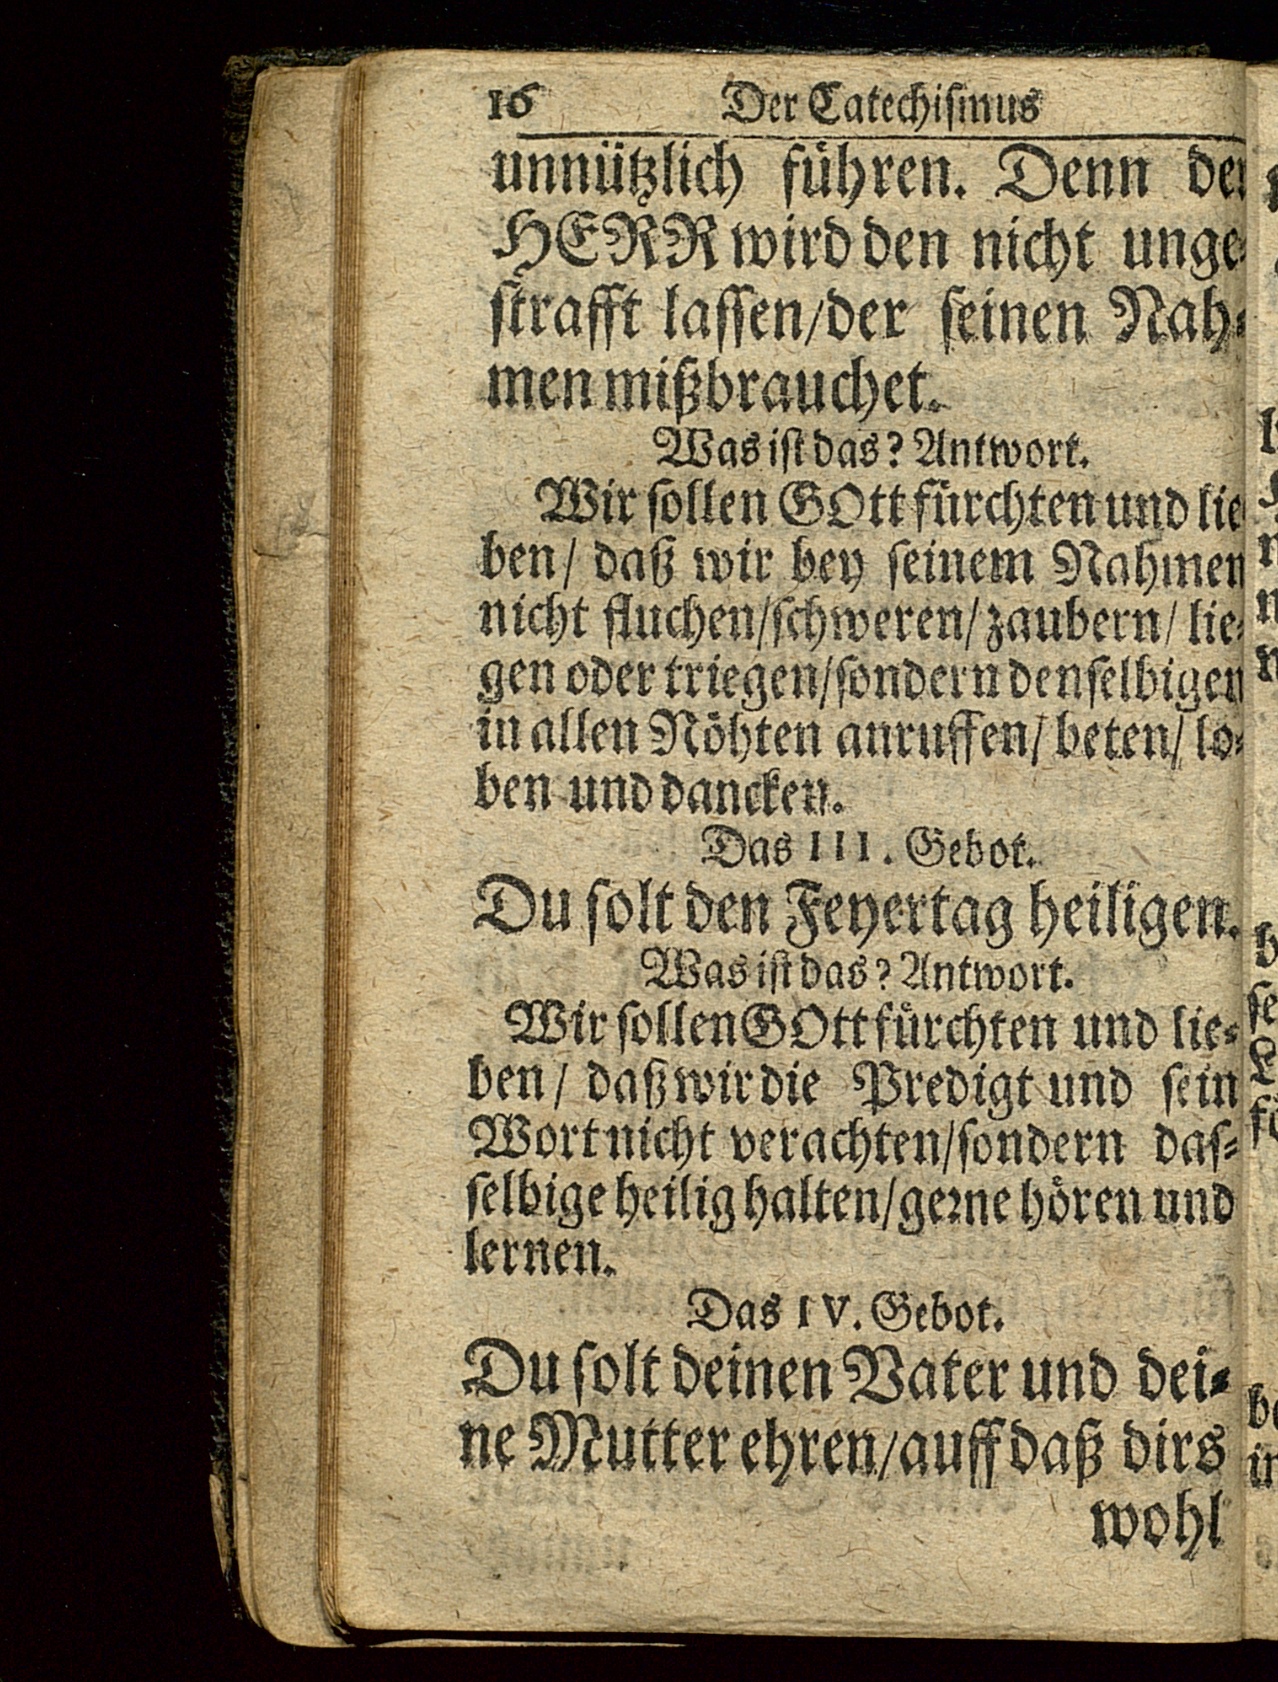 16 Der Catechiſmus
unnützlich führen. Denn der
HERR wird den nicht unge⸗
ſtrafft laſſen/der ſeinen Nah⸗
men mißbrauchet.
Was iſt das? Antwort.
Wir ſollen GOtt fürchten und lie
ben/ daß wir bey ſeinem Nahmen
nicht fluchen/ſchweren/zaubern/ lie⸗
gen oder triegen/ſondern denſelbigen
in allen Nöhten anruffen/ beten/ lo⸗
ben und dancken.
Das III. Gebot.
Du ſolt den Feyertag heiligen.
Was iſt das? Antwort.
Wir ſollen GOtt fürchten und lie⸗
ben/ daß wir die Predigt und ſein
Wort nicht verachten/ſondern daſ⸗
ſelbige heilig halten/gerne hören und
lernen.
Das IV. Gebot.
Du ſolt deinen Vater und dei⸗
ne Mutter ehren/auff daß dirs
wohl